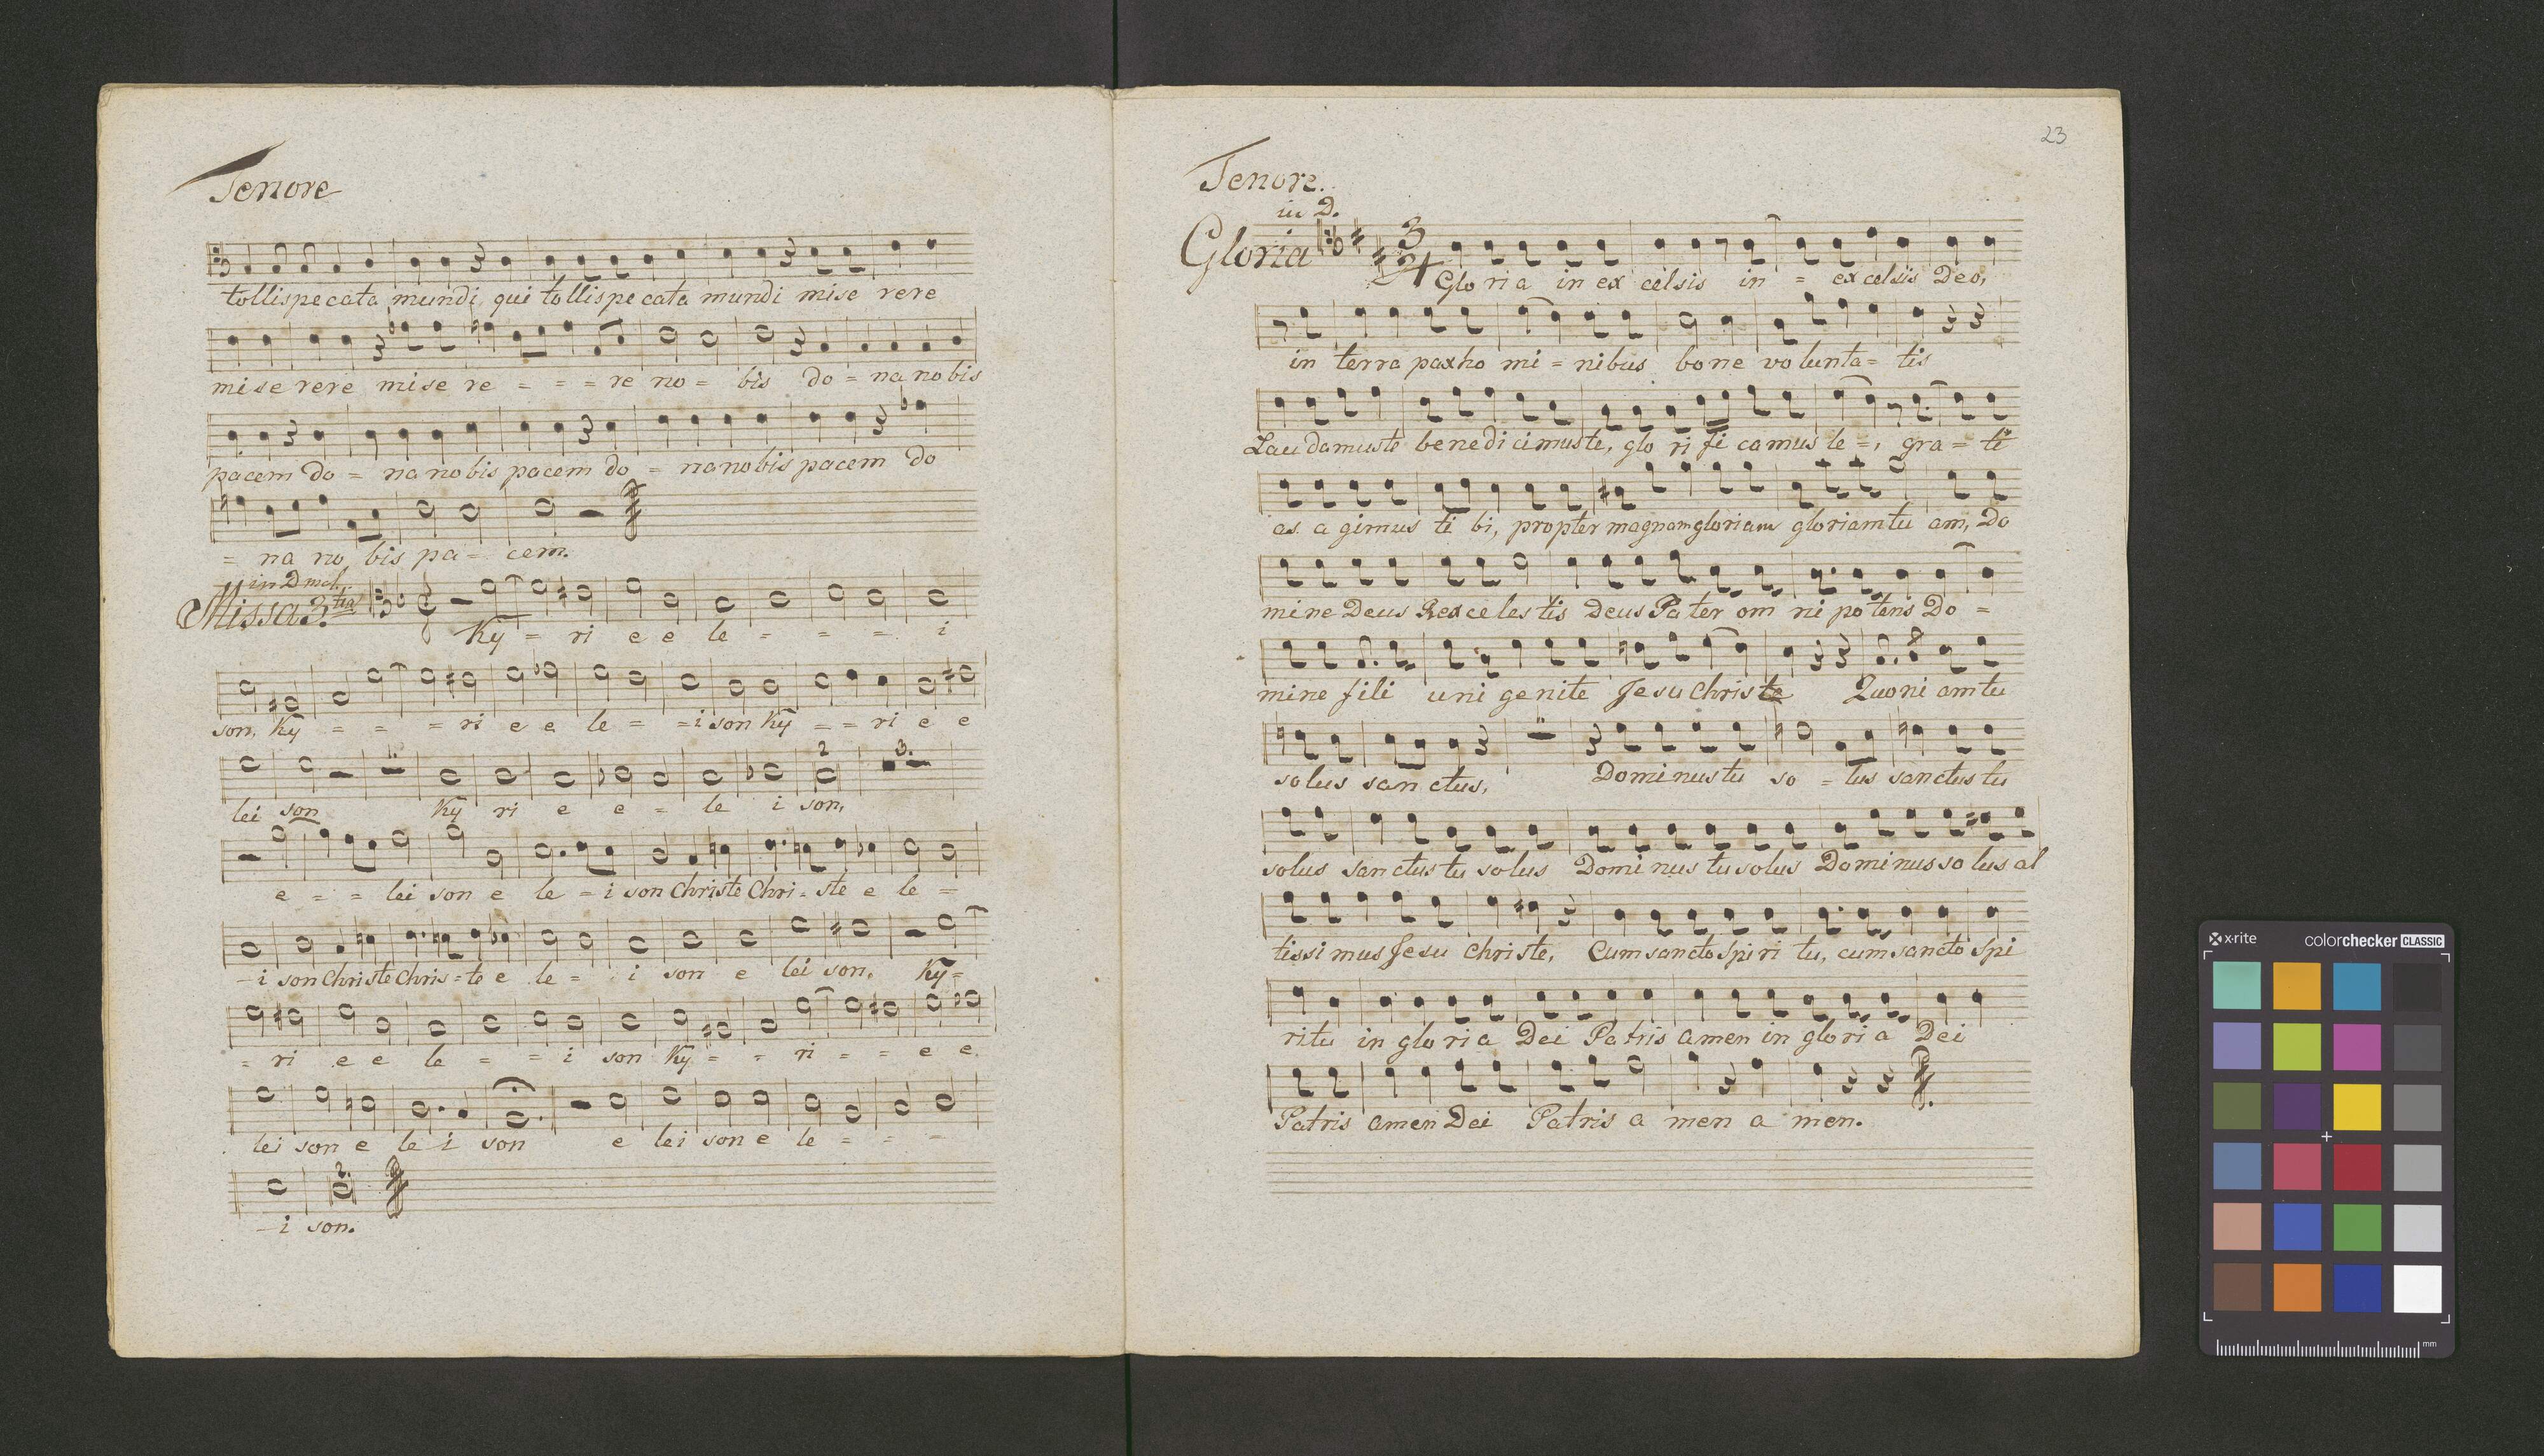 Tenore
tollis pecata mundi qui tollis pecata mundi mise rere
mise rere mise re = = = re no = bis do = na nobis
pacem do = na nobis pacem do = na nobis pacem do
= na no bis pa = cem.
in D mol.
Missa 3.tia
Ky = ri e e le = = = i
son, Ky = = = ri e e le = = i son Ky = = ri e e
2 3.
lei son Ky ri e e = le i son,
e = = lei son e le = i son Christe Chri = ste e le =
- i son Christe Chris = te e le = i son e lei son. Ky =
= ri e e le = = i son Ky = = ri = = e e
lei son e le i son e lei son e le = = =
2.
- i son.
23
Tenore.
in D.
Gloria
3
4
Glo ri a in ex celsis in = ex celsis Deo,
in terra pax ho mi = nibus bone volunta = tis
Laudamus te benedicimus te, glo ri fi camus te =, gra = ti
as a gimus ti bi, propter magnam gloriam gloriam tu am, Do
mine Deus Rex celestis Deus Pater om ni potens Do =
mine fili uni genite Jesu Christe Quoni am tu
solus sanctus, Dominus tu so = lus sanctus tu
solus sanctus tu solus Dominus tu solus Dominus solus al
tissimus Jesu Christe, Cum sancto Spi ri tu, cum sancto Spi
ritu in glo ri a Dei Patris amen in glori a Dei
Patris amen Dei Patris a men a men.
x-rite
colorchecker CLASSIC
mm